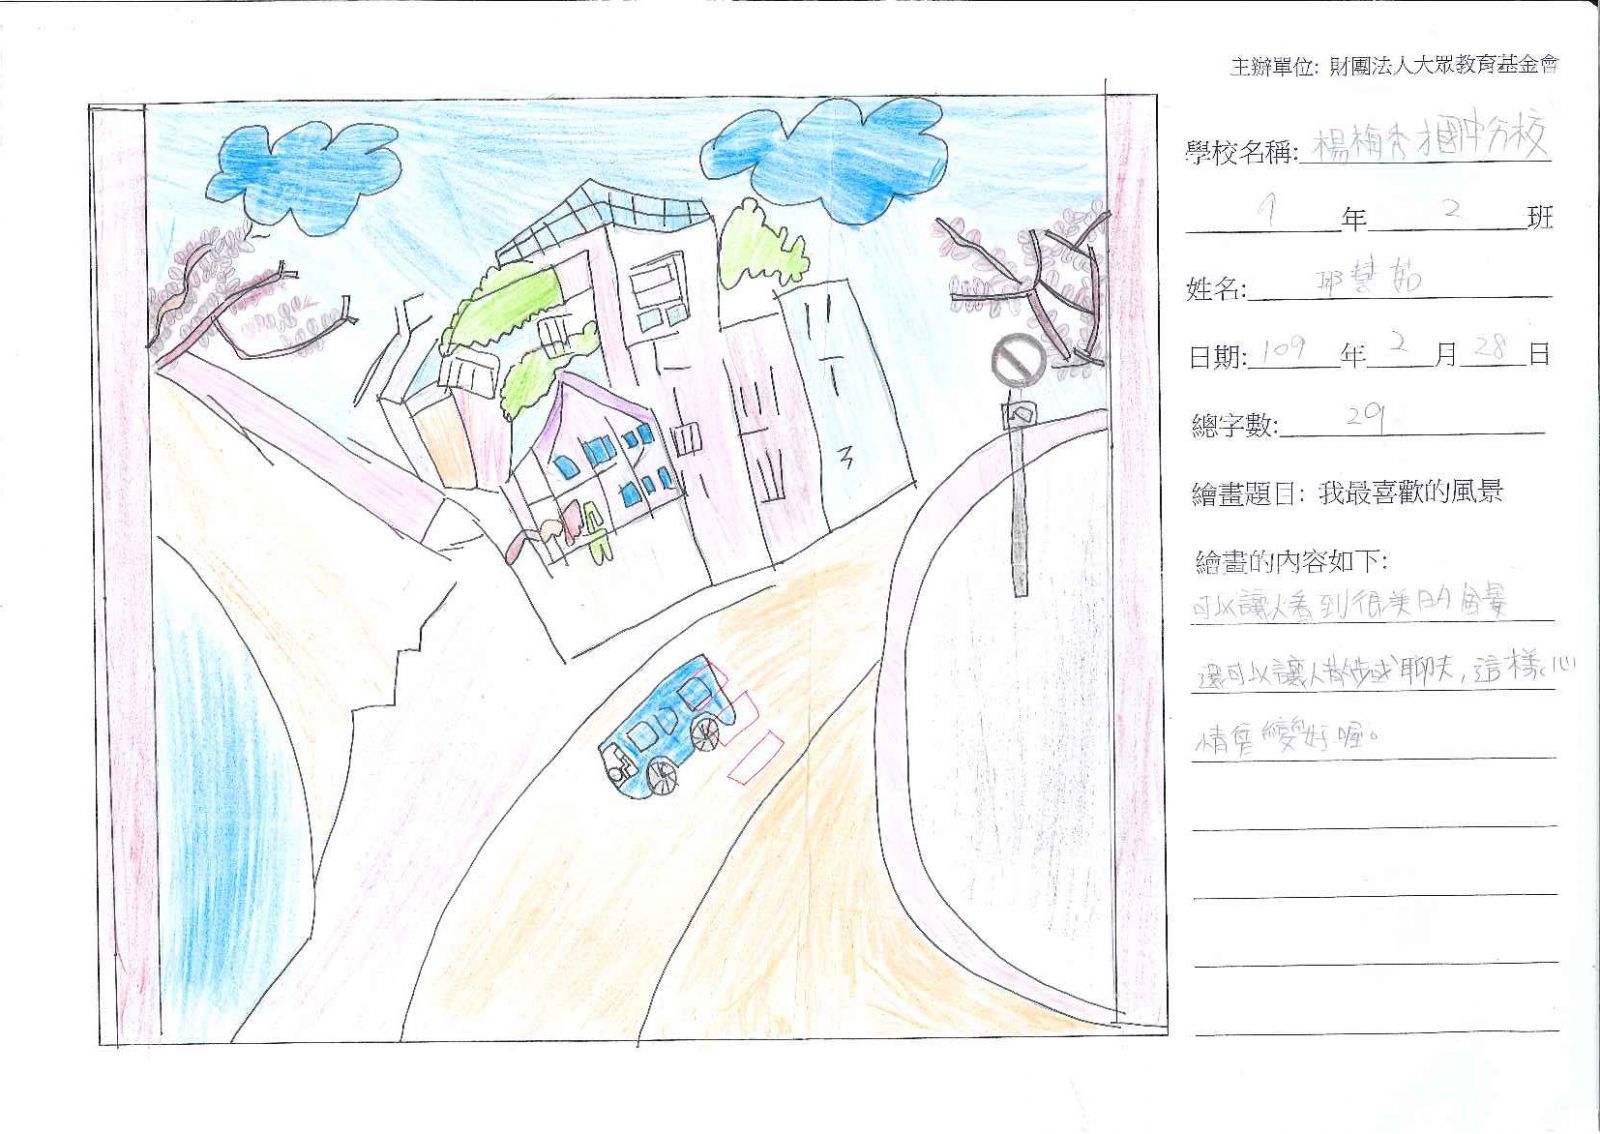 主辦單位: 財團法人大眾教育基金會
學校名稱: 楊梅秀才國中分校
9 年 2 班
姓名: 邢慧茹
日期: 109 年 2 月 28 日
總字數: 29
繪畫題目: 我最喜歡的風景
繪畫的內容如下:
可以讓人看到很美的風景
還可以讓人散步或聊天，這樣心
情會變好喔。
3